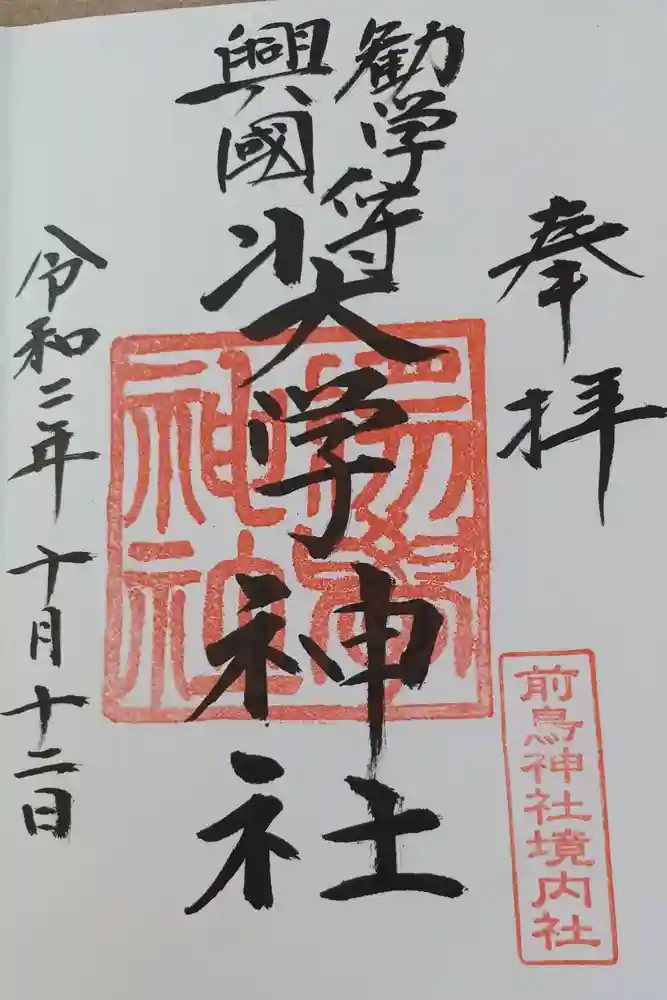 奉拝
勧学
興國
奨学神社
令和二年十月十二日
前鳥神社境内社